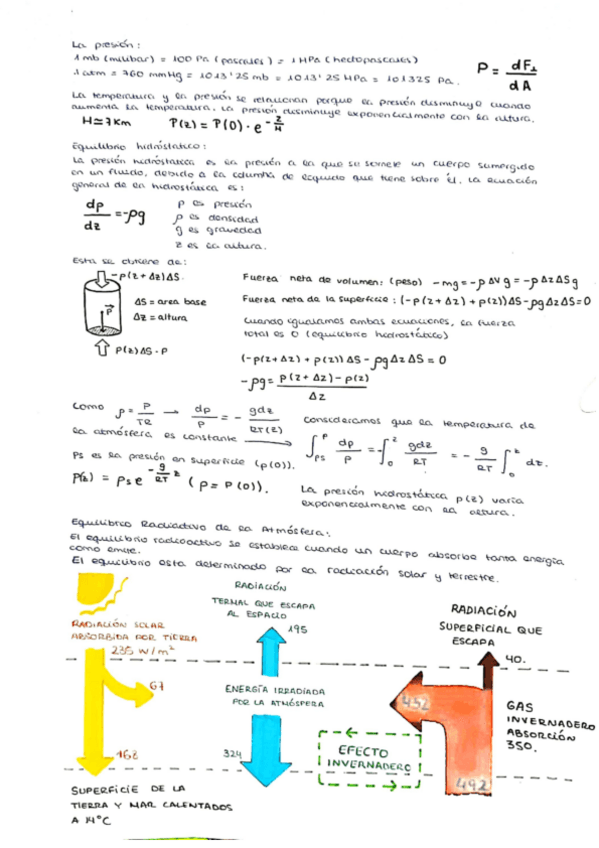 La presión:
1 mb (milibar) = 100 Pa (pascales) = 1 HPa (hectopascales)
1 atm = 760 mmHg = 1013'25 mb = 1013'25 HPa = 101325 Pa.
P = dF⊥/dA
La temperatura y la presión se relacionan porque la presión disminuye cuando
aumenta la temperatura. La presión disminuye exponencialmente con la altura.
H ≃ 7 Km P(z) = P(0) · e^(-z/H)
Equilibrio hidróstatico:
La presión hidróstatica es la presión a la que se somete un cuerpo sumergido
en un fluido, debido a la columna de líquido que tiene sobre él. La ecuación
general de la hidrostática es:
dp/dz = -ρg
p es presión
ρ es densidad
g es gravedad
z es la altura.
Esta se obtiene de:
-p(z+Δz)ΔS.
ΔS = area base
Δz = altura
P
P(z)ΔS·P
Fuerza neta de volumen: (peso) -mg = -ρΔVg = -ρΔzΔSg
Fuerza neta de la superficie: (-p(z+Δz)+p(z))ΔS-ρgΔzΔS=0
Cuando igualamos ambas ecuaciones, la fuerza
total es 0 (equilibrio hidrostático)
(-p(z+Δz)+p(z))ΔS-ρgΔzΔS = 0
-ρg = p(z+Δz)-p(z) / Δz
Como ρ = P/TR → dp/p = - gdz/RT(z) consideramos que la temperatura de
la atmósfera es constante → ∫ps^p dp/p = -∫0^z gdz/RT = - g/RT ∫0^z dz.
Ps es la presión en superficie (p(0)).
P(z) = ps e^(-g/RT z) (p = P(0)).
La presión hidrostática p(z) varía
exponencialmente con la altura.
Equilibrio Radiactivo de la Atmósfera:
El equilibrio radioactivo se establece cuando un cuerpo absorbe tanta energía
como emite.
El equilibrio esta determinado por la radiación solar y terrestre.
RADIACIÓN SOLAR
ABSORBIDA POR TIERRA
235 W/m²
67
168
SUPERFICIE DE LA
TIERRA Y MAR CALENTADOS
A 14°C
RADIACIÓN
TERMAL QUE ESCAPA
AL ESPACIO
195
ENERGÍA IRRADIADA
POR LA ATMÓSFERA
324
EFECTO
INVERNADERO
RADIACIÓN
SUPERFICIAL QUE
ESCAPA
40.
452
GAS
INVERNADERO
ABSORCIÓN
350.
492